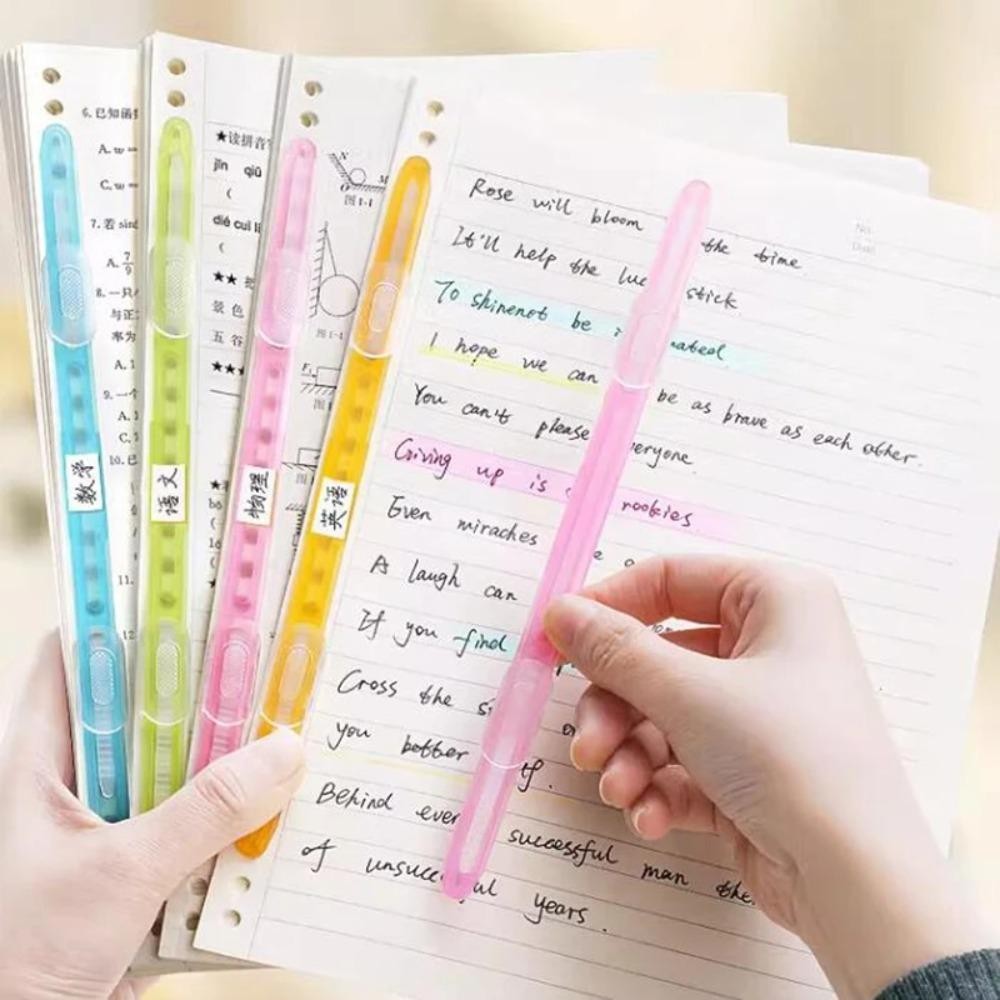 6. 已知函
A. w =
C. w =
7. 若 sin
A. 7/9
8. 一只
与正
率为
A. 1
9. 一个
A. 1
C.
10. 已
11.
12
数学
★读拼音
jīn qiū
(
dié cuì
(
★★
景色
五谷
★★★
语文
N
M
O
图1-1
图1-1
F₁
图
物理
英语
No.
Date
Rose will bloom the time
It'll help the luc stick.
To shinenot be nated.
I hope we can be as brave as each other.
You can't please eryone
Giving up is rookies
Even miraches
A laugh can
If you find
Cross the
you better lf.
Behind ever successful man the
of unsucce ful years.